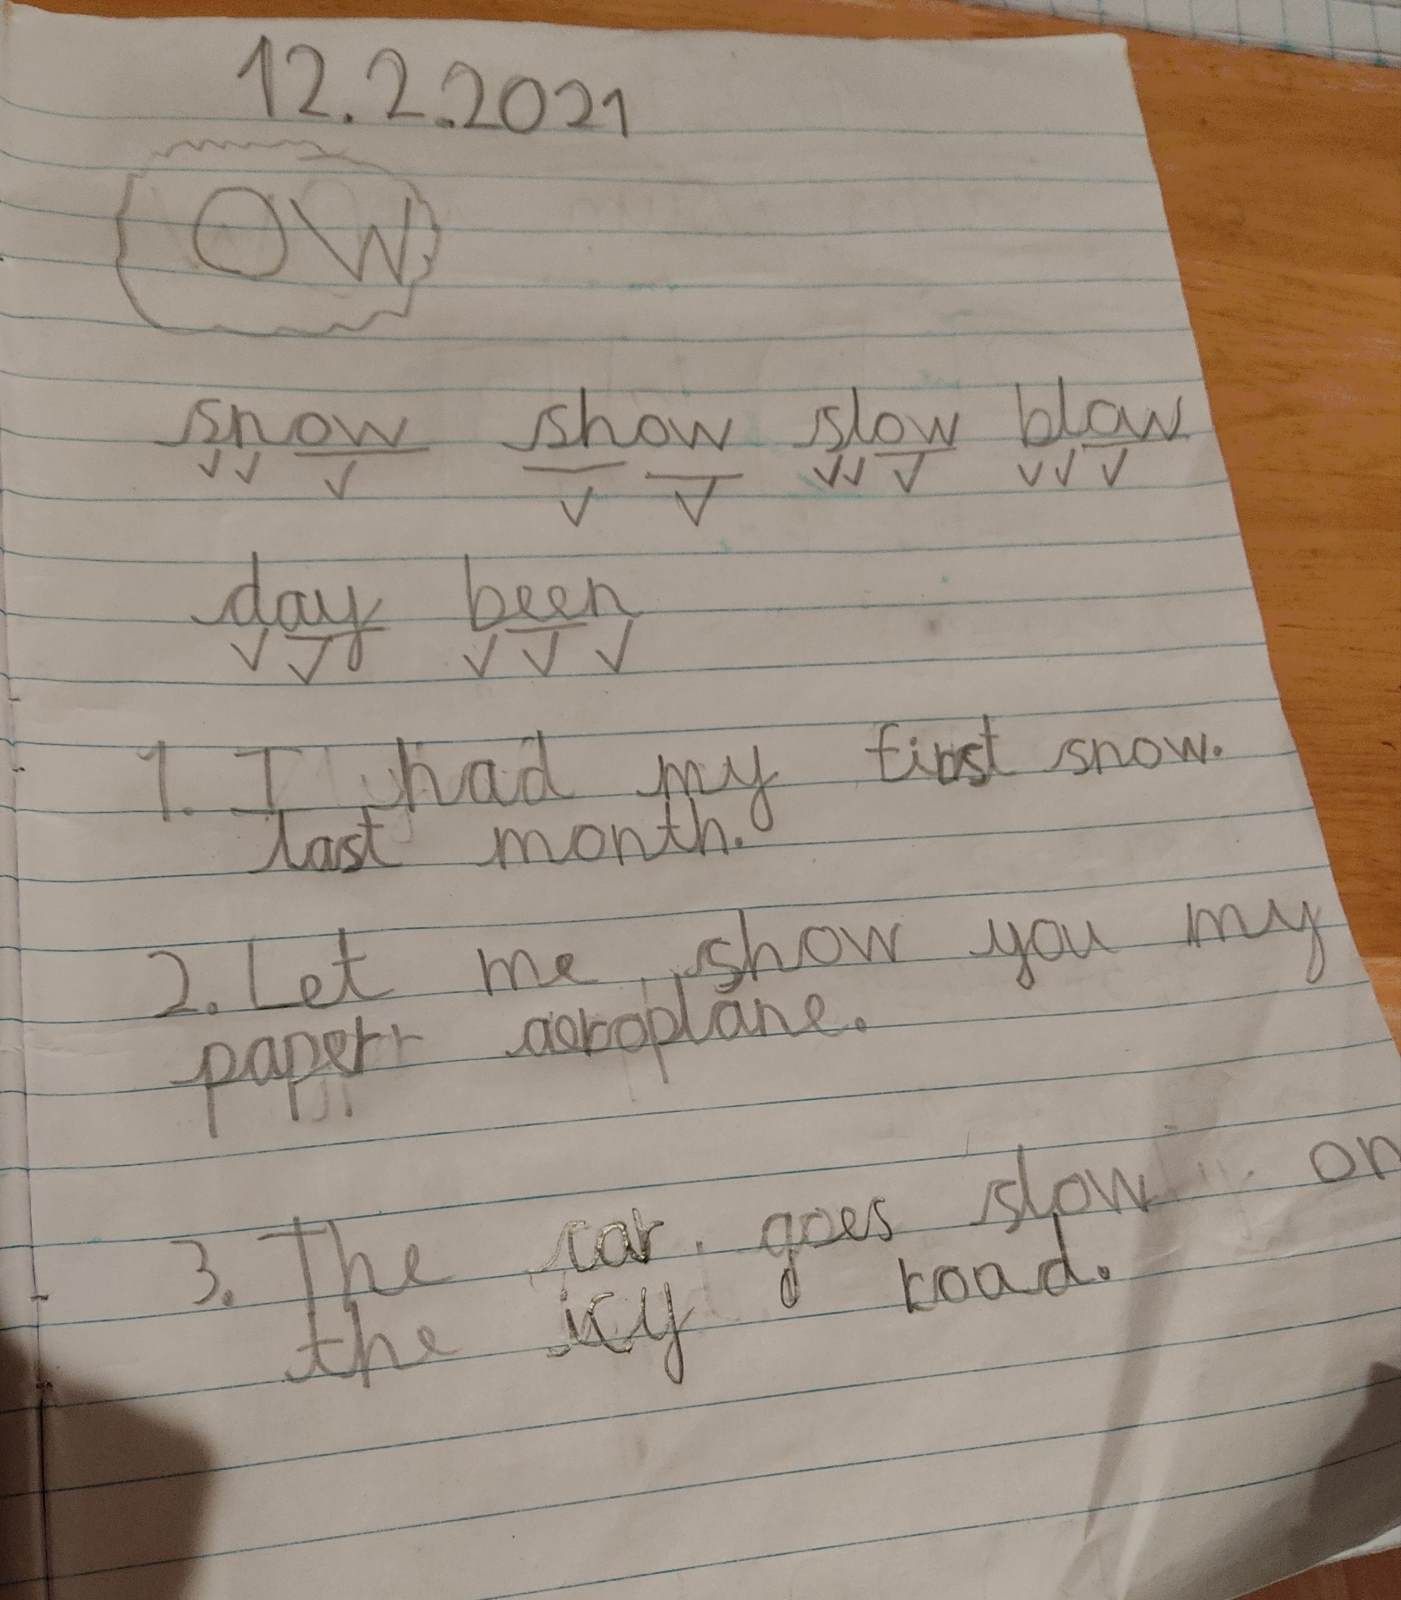 12.2.2021
OW
snow show slow blow
day been
1. I had my first snow.
last month.
2. Let me show you my
paper aeroplane.
3. The car goes slow on
the icy road.